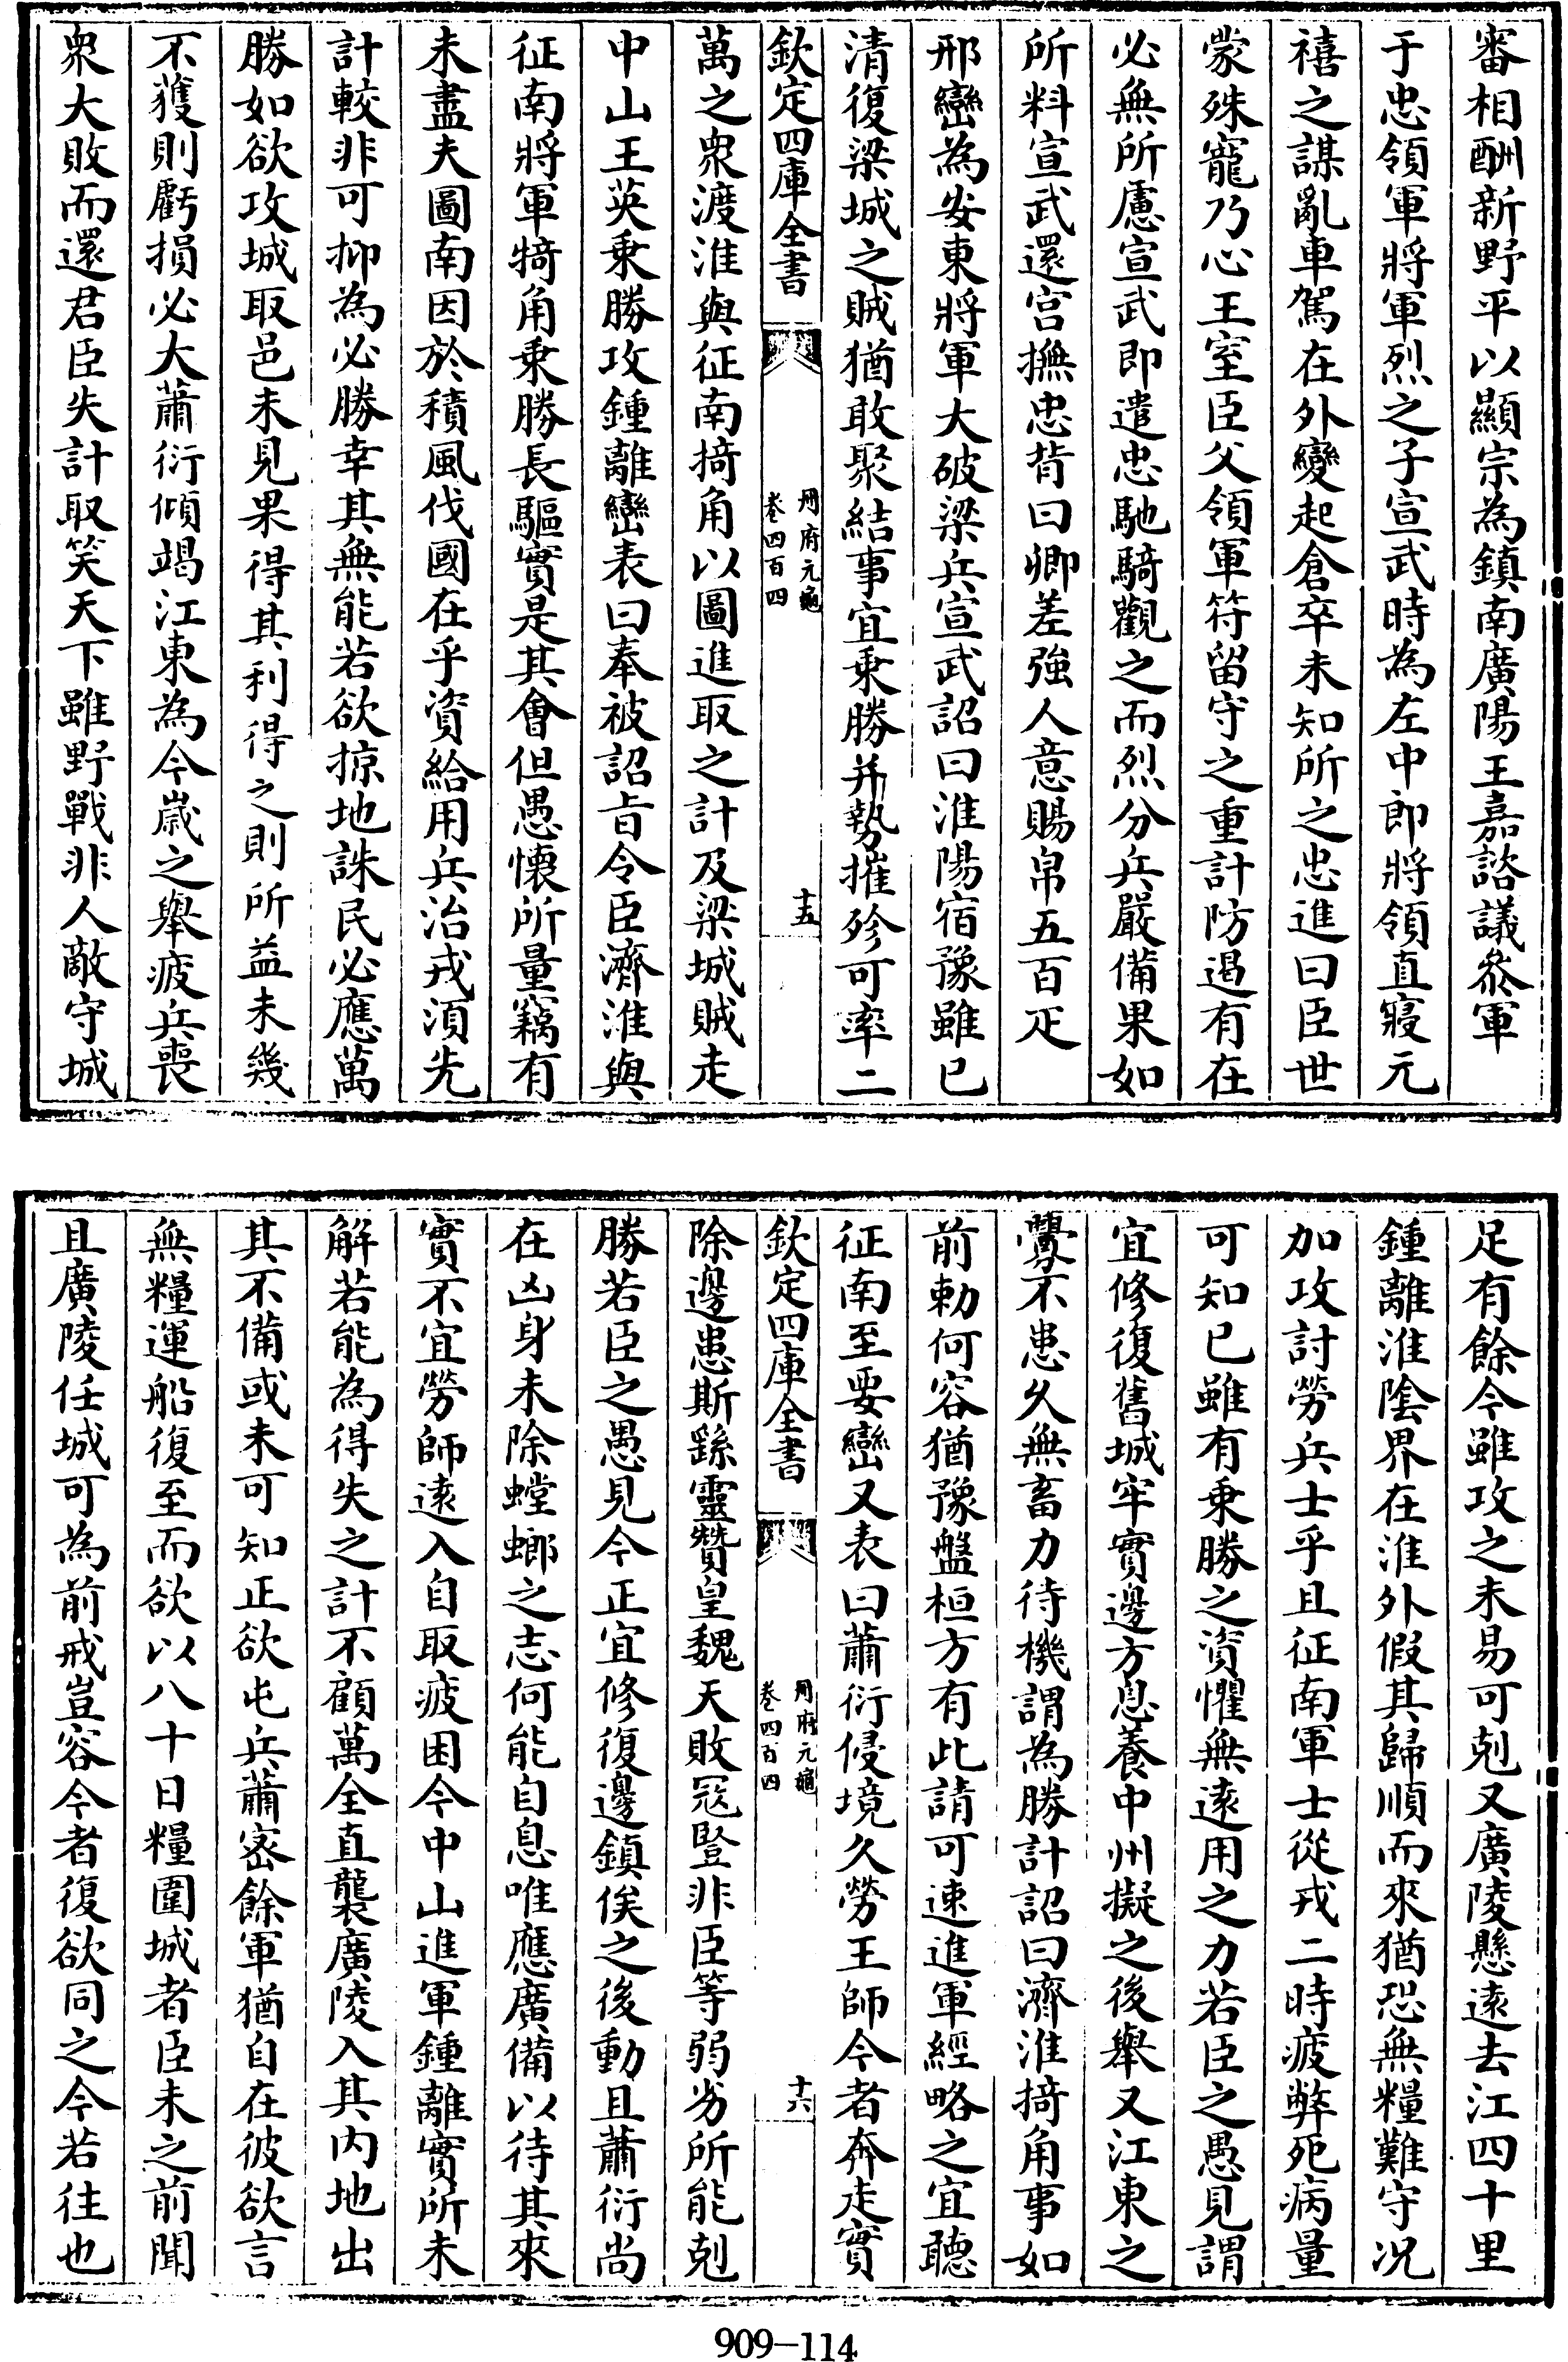 審相酬新野平以顯宗為鎮南廣陽王嘉諮議叅軍
于忠領軍將軍烈之子宣武時為左中郎將領直寢元
禧之謀亂車駕在外變起倉卒未知所之忠進曰臣世
蒙殊寵乃心王室臣父領軍符留守之重計防遏有在
必無所慮宣武即遣忠馳騎觀之而烈分兵嚴備果如
所料宣武還宫撫忠背曰卿差強人意賜帛五百疋
邢巒為安東將軍大破梁兵宣武詔曰淮陽宿豫雖已
清復梁城之賊猶敢聚結事宜乗勝并勢摧殄可率二
欽定四庫全書
册府元龜
卷四百四
十五
萬之衆渡淮與征南掎角以圖進取之計及梁城賊走
中山王英乗勝攻鍾離巒表曰奉被詔㫖令臣濟淮與
征南將軍犄角乗勝長驅實是其會但愚懷所量竊有
未盡夫圖南因於積風伐國在乎資給用兵治戎須先
計較非可抑為必勝幸其無能若欲掠地誅民必應萬
勝如欲攻城取邑未見果得其利得之則所益未幾
不獲則虧損必大蕭衍傾竭江東為今歲之舉疲兵喪
衆大敗而還君臣失計取笑天下雖野戰非人敵守城
足有餘今雖攻之未易可剋又廣陵懸逺去江四十里
鍾離淮陰界在淮外假其歸順而來猶恐無糧難守况
加攻討勞兵士乎且征南軍士從戎二時疲弊死病量
可知已雖有乗勝之資懼無逺用之力若臣之愚見謂
宜修復舊城牢實邊方息養中州擬之後舉又江東之
釁不患乆無畜力待機謂為勝計詔曰濟淮掎角事如
前勅何容猶豫盤桓方有此請可速進軍經略之宜聽
征南至要巒又表曰蕭衍侵境久勞王師今者奔走實
欽定四庫全書
册府元龜
卷四百四
十六
除邊患斯繇靈贊皇魏天敗冦豎非臣等弱劣所能剋
勝若臣之愚見今正宜修復邊鎮俟之後動且蕭衍尚
在凶身未除螳螂之志何能自息唯應廣備以待其來
實不宜勞師逺入自取疲困今中山進軍鍾離實所未
解若能為得失之計不顧萬全直襲廣陵入其内地出
其不備或未可知正欲屯兵蕭宻餘軍猶自在彼欲言
無糧運船復至而欲以八十日糧圍城者臣未之前聞
且廣陵任城可為前戒豈容今者復欲同之今若往也
909-114